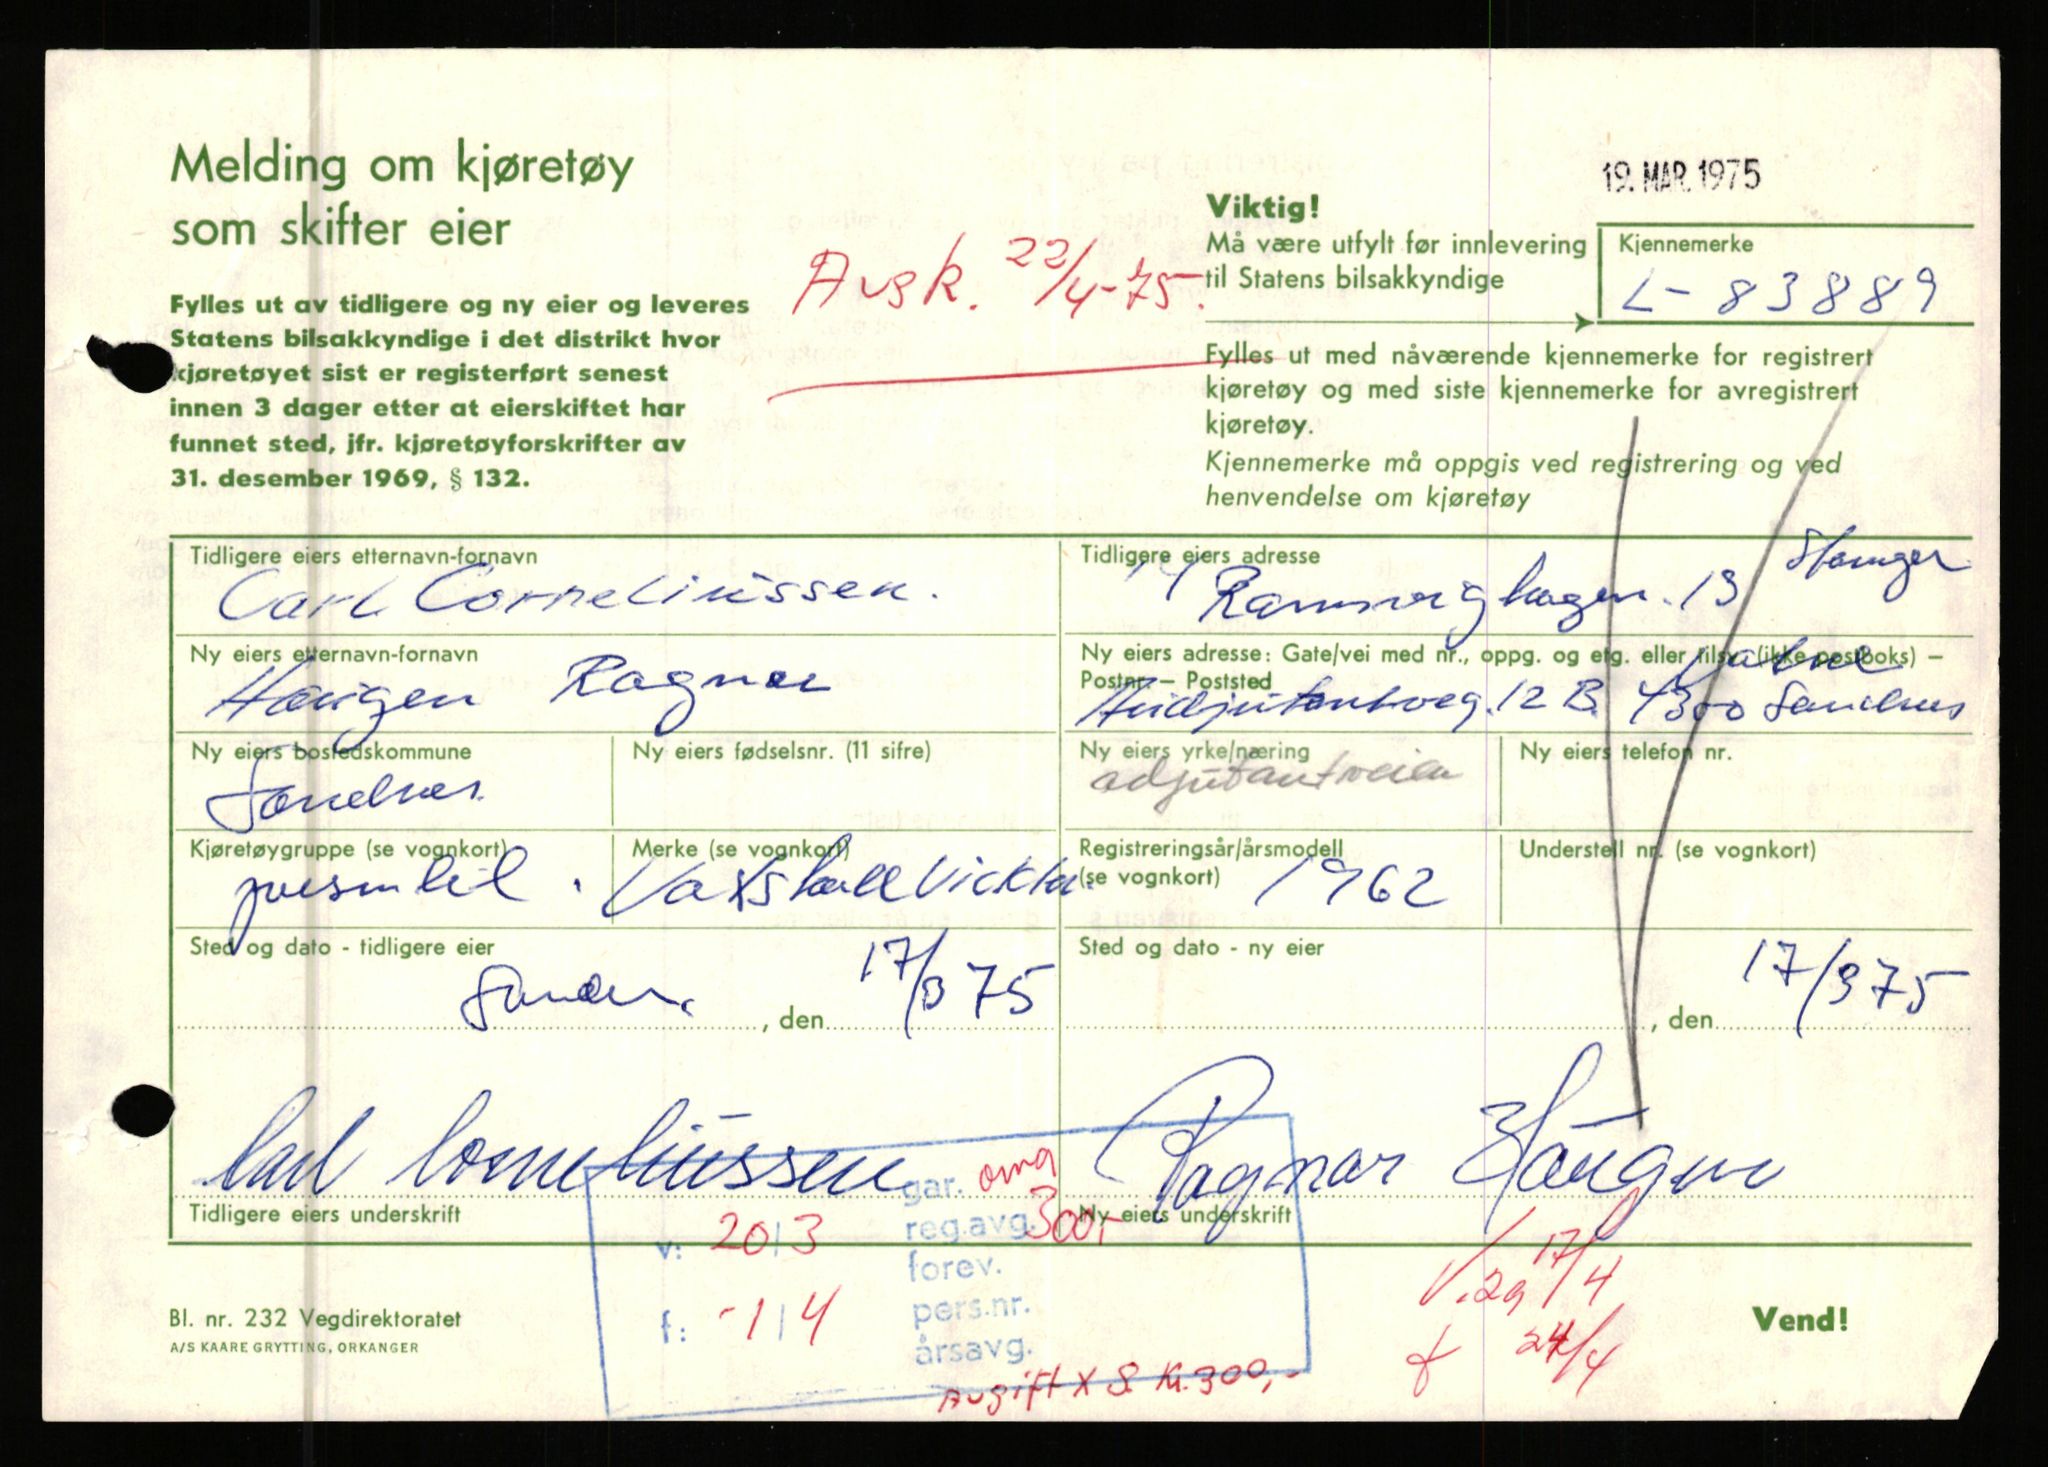 Melding om kjøretøy
som skifter eier
Fylles ut av tidligere og ny eier og leveres
Statens bilsakkyndige i det distrikt hvor
kjøretøyet sist er registerført senest
innen 3 dager etter at eierskiftet har
funnet sted, jfr. kjøretøyforskrifter av
31. desember 1969, § 132.
Avsk. 22/4-75.
19. MAR. 1975
Viktig!
Må være utfylt før innlevering
til Statens bilsakkyndige
Kjennemerke
L-83889
Fylles ut med nåværende kjennemerke for registrert
kjøretøy og med siste kjennemerke for avregistrert
kjøretøy.
Kjennemerke må oppgis ved registrering og ved
henvendelse om kjøretøy
Tidligere eiers etternavn-fornavn
Carl Corneliussen.
Tidligere eiers adresse
13
Ny eiers etternavn-fornavn
Haugen Ragnar
Ny eiers adresse: Gate/vei med nr., oppg. og etg. eller tilsv. (ikke postboks) –
Postnr. – Poststed
12 B. 4300 Sandnes
Ny eiers bostedskommune
Sandnes
Ny eiers fødselsnr. (11 sifre)
Ny eiers yrke/næring
adjutantveien
Ny eiers telefon nr.
Kjøretøygruppe (se vognkort)
Merke (se vognkort)
Registreringsår/årsmodell
(se vognkort) 1962
Understell nr. (se vognkort)
Sted og dato - tidligere eier
, den 17/3 75
Sted og dato - ny eier
, den 17/3 75
Carl Corneliussen
Tidligere eiers underskrift
Ragnar Haugen
Ny eiers underskrift
gar. omg
v: 20/3 reg.avg. 300,-
forev.
f: -1/4 pers.nr.
årsavg.
Avgift x S. Kr. 300,-
17/4
24/4
Bl. nr. 232 Vegdirektoratet
A/S KAARE GRYTTING, ORKANGER
Vend!